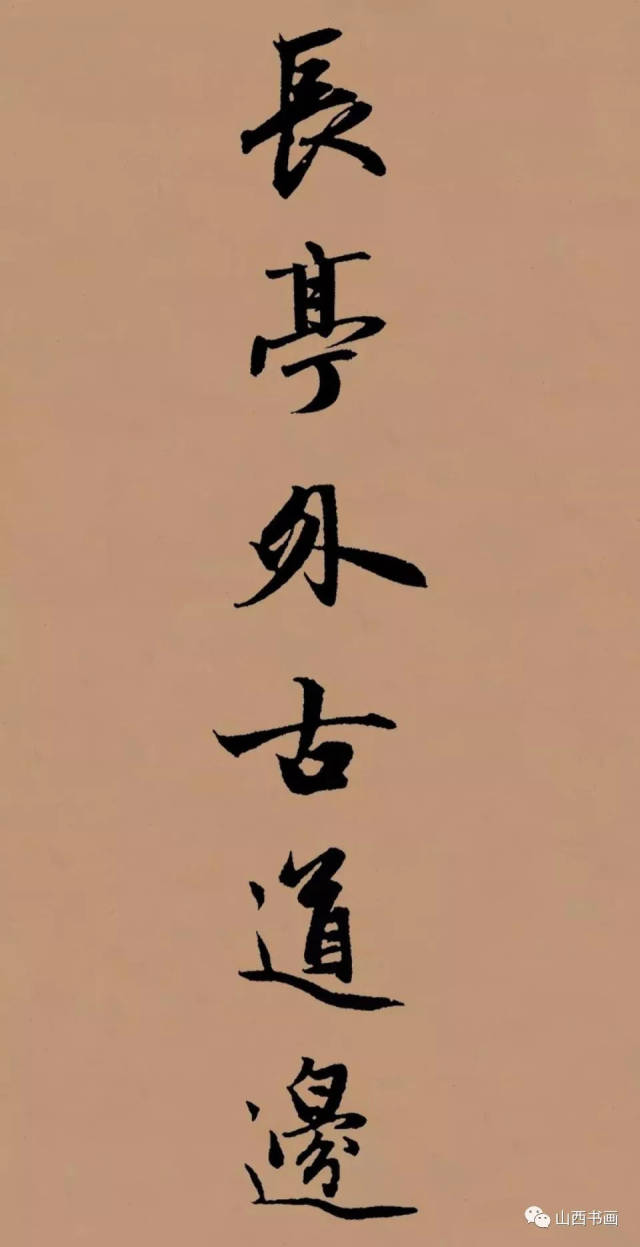 長亭外古道邊
山西书画